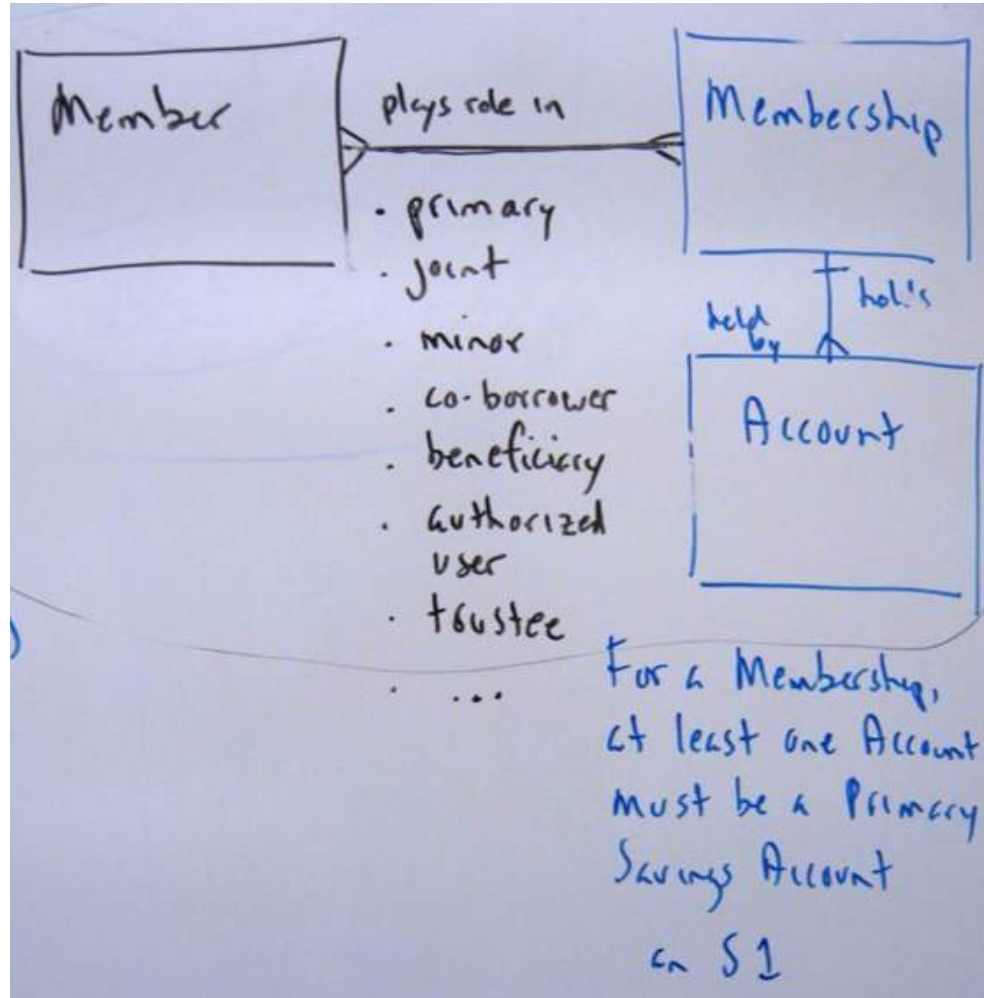 Member
plays role in
Membership
· primary
· joint
· minor
· co-borrower
· beneficiary
· authorized
user
· trustee
· ...
held
by
holds
Account
For a Membership,
at least one Account
must be a Primary
Savings Account
an S1